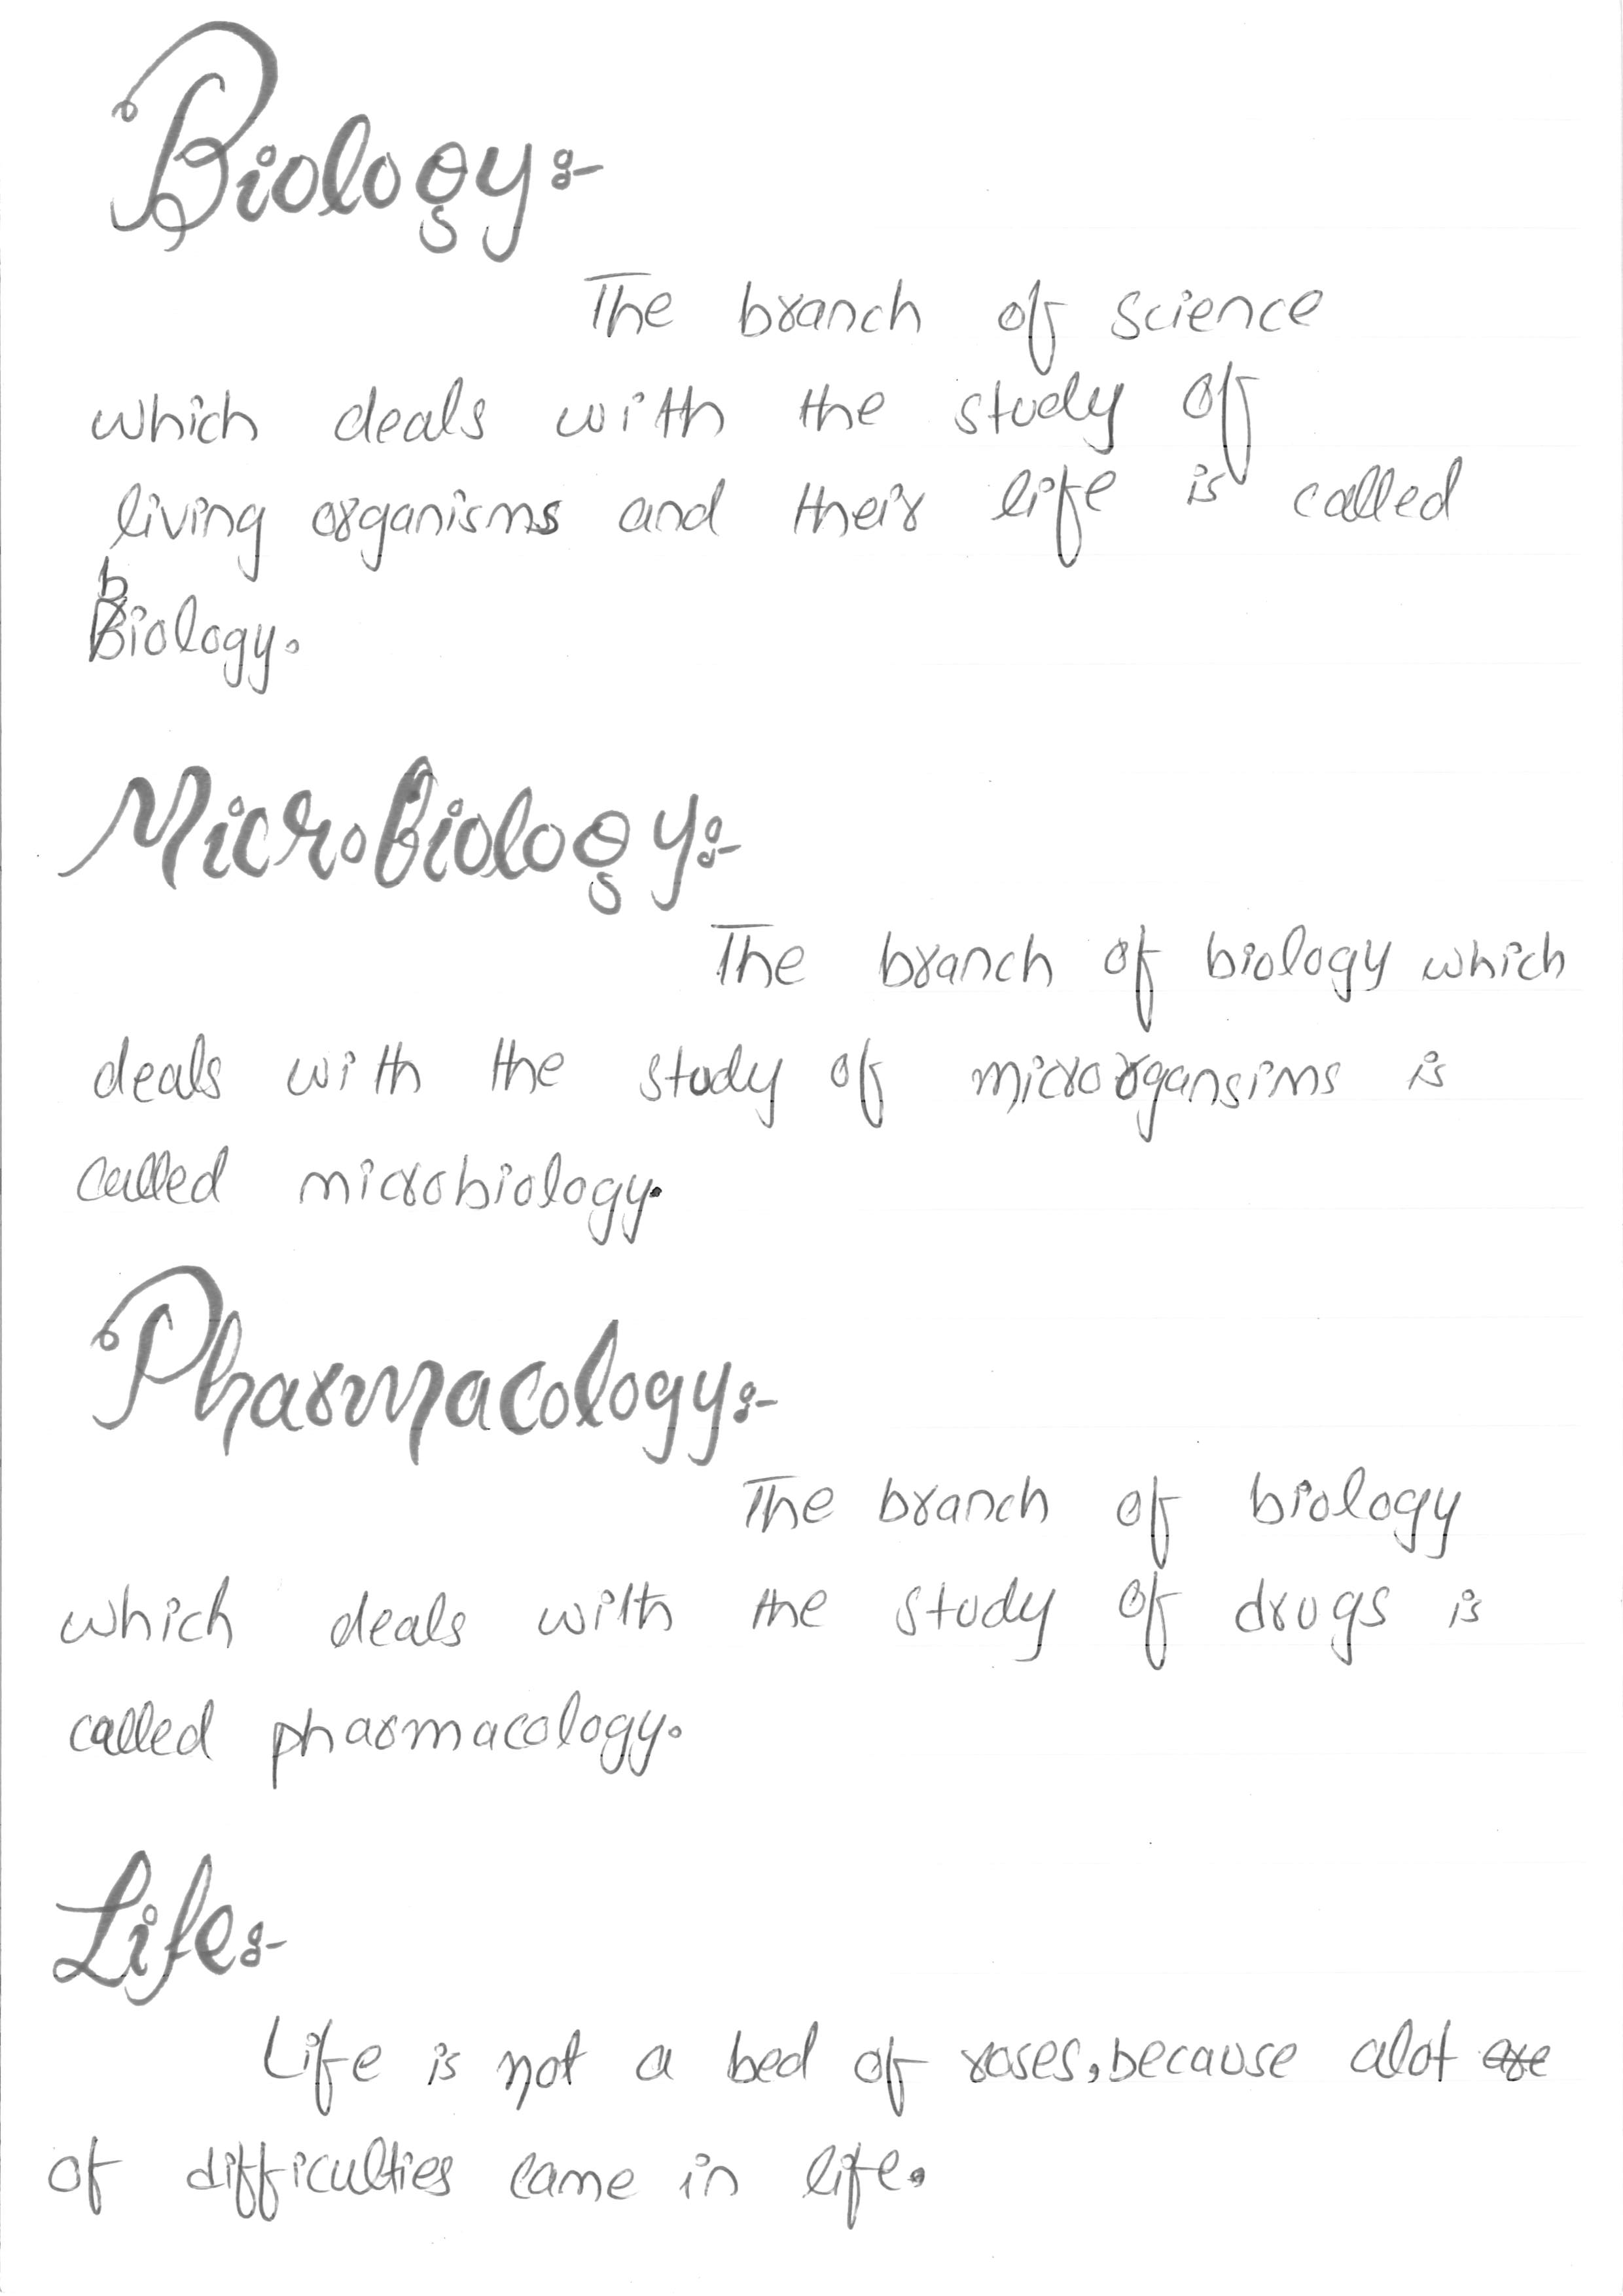 Biology:-
The branch of science
which deals with the study of
living organisms and their life is called
biology.
Microbiology:-
The branch of biology which
deals with the study of microrgansims is
called microbiology.
Pharmacology:-
The branch of biology
which deals with the study of drugs is
called pharmacology.
Life:-
Life is not a bed of roses, because alot are
of difficulties came in life.